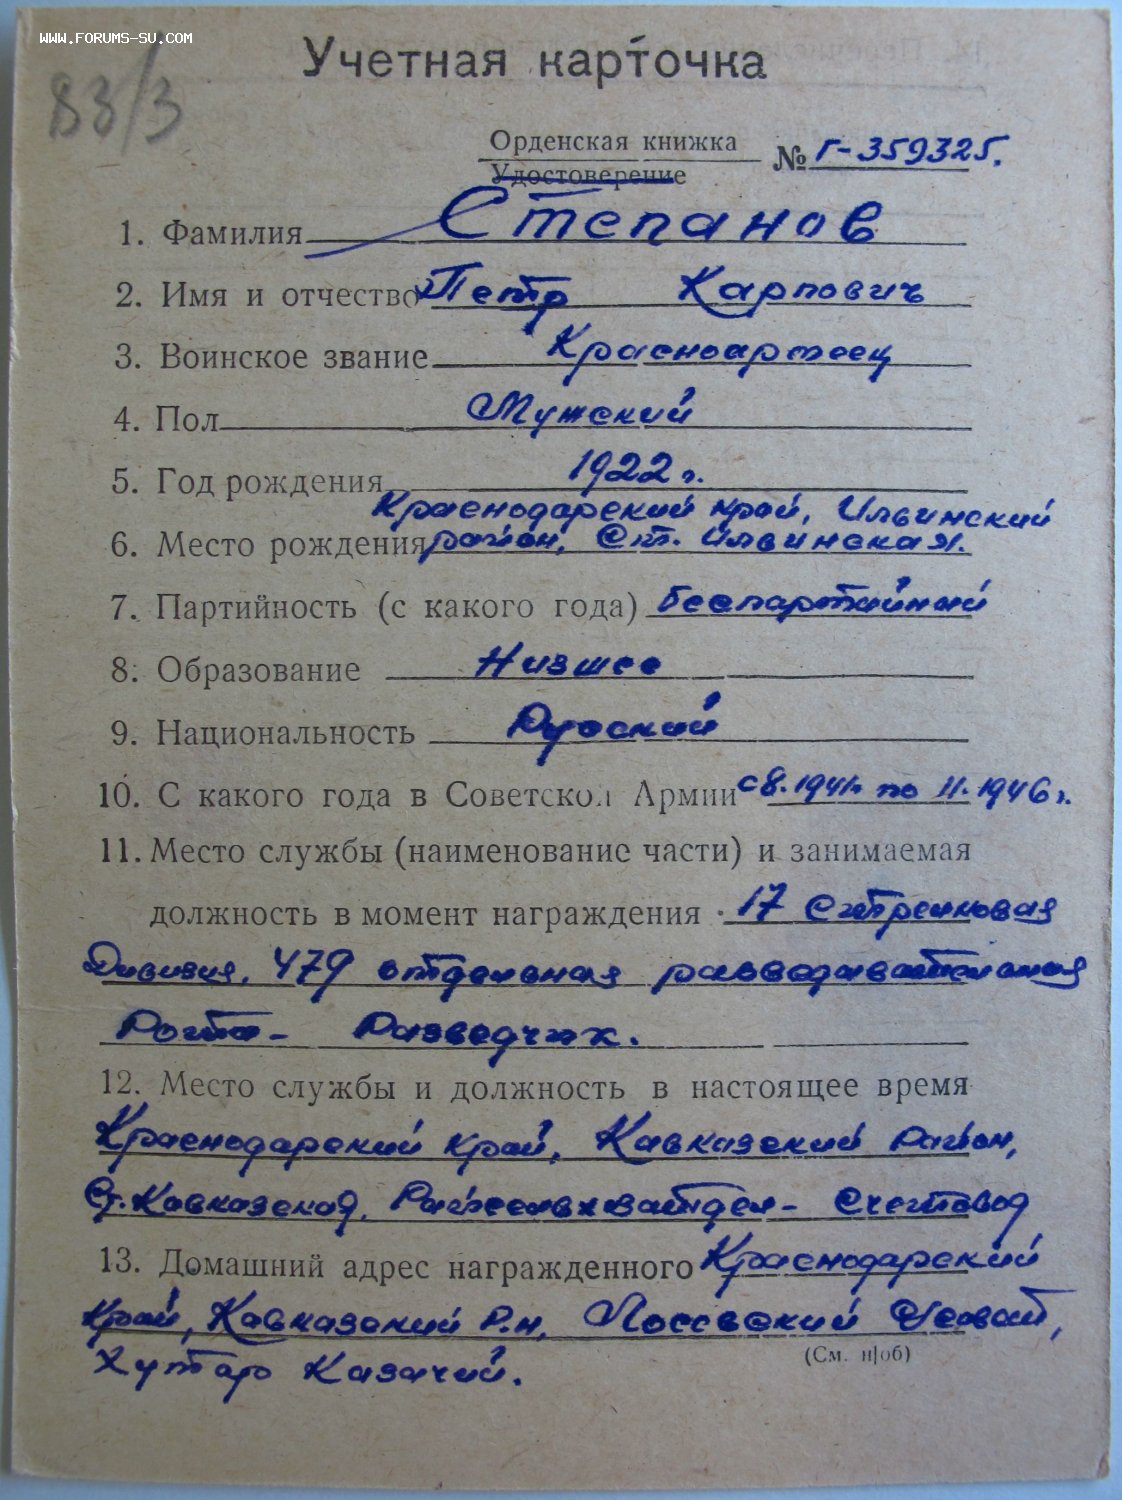 WWW.FORUMS-SU.COM
83/3
Учетная карточка
Орденская книжка
Удостоверение
№ Г-359325.
1. Фамилия Степанов
2. Имя и отчество Петр Карпович
3. Воинское звание Красноармеец
4. Пол Мужский
5. Год рождения 1922 г.
Краснодарский край, Ильинский
6. Место рождения район, Ст. Ильинская.
7. Партийность (с какого года) беспартийный
8. Образование Низшее
9. Национальность Русский
10. С какого года в Советской Армии с 8.1941г. по 11.1946 г.
11. Место службы (наименование части) и занимаемая
должность в момент награждения 17 Стрелковая
Дивизия, 479 отдельная разведывательная
Рота - Разведчик.
12. Место службы и должность в настоящее время
Краснодарский край, Кавказский район,
Ст. Кавказская, - Счетовод
13. Домашний адрес награжденного Краснодарский
край, Кавказский р.н, Лосевский С/Совет,
(См. н|об)
Хутор Казачий.